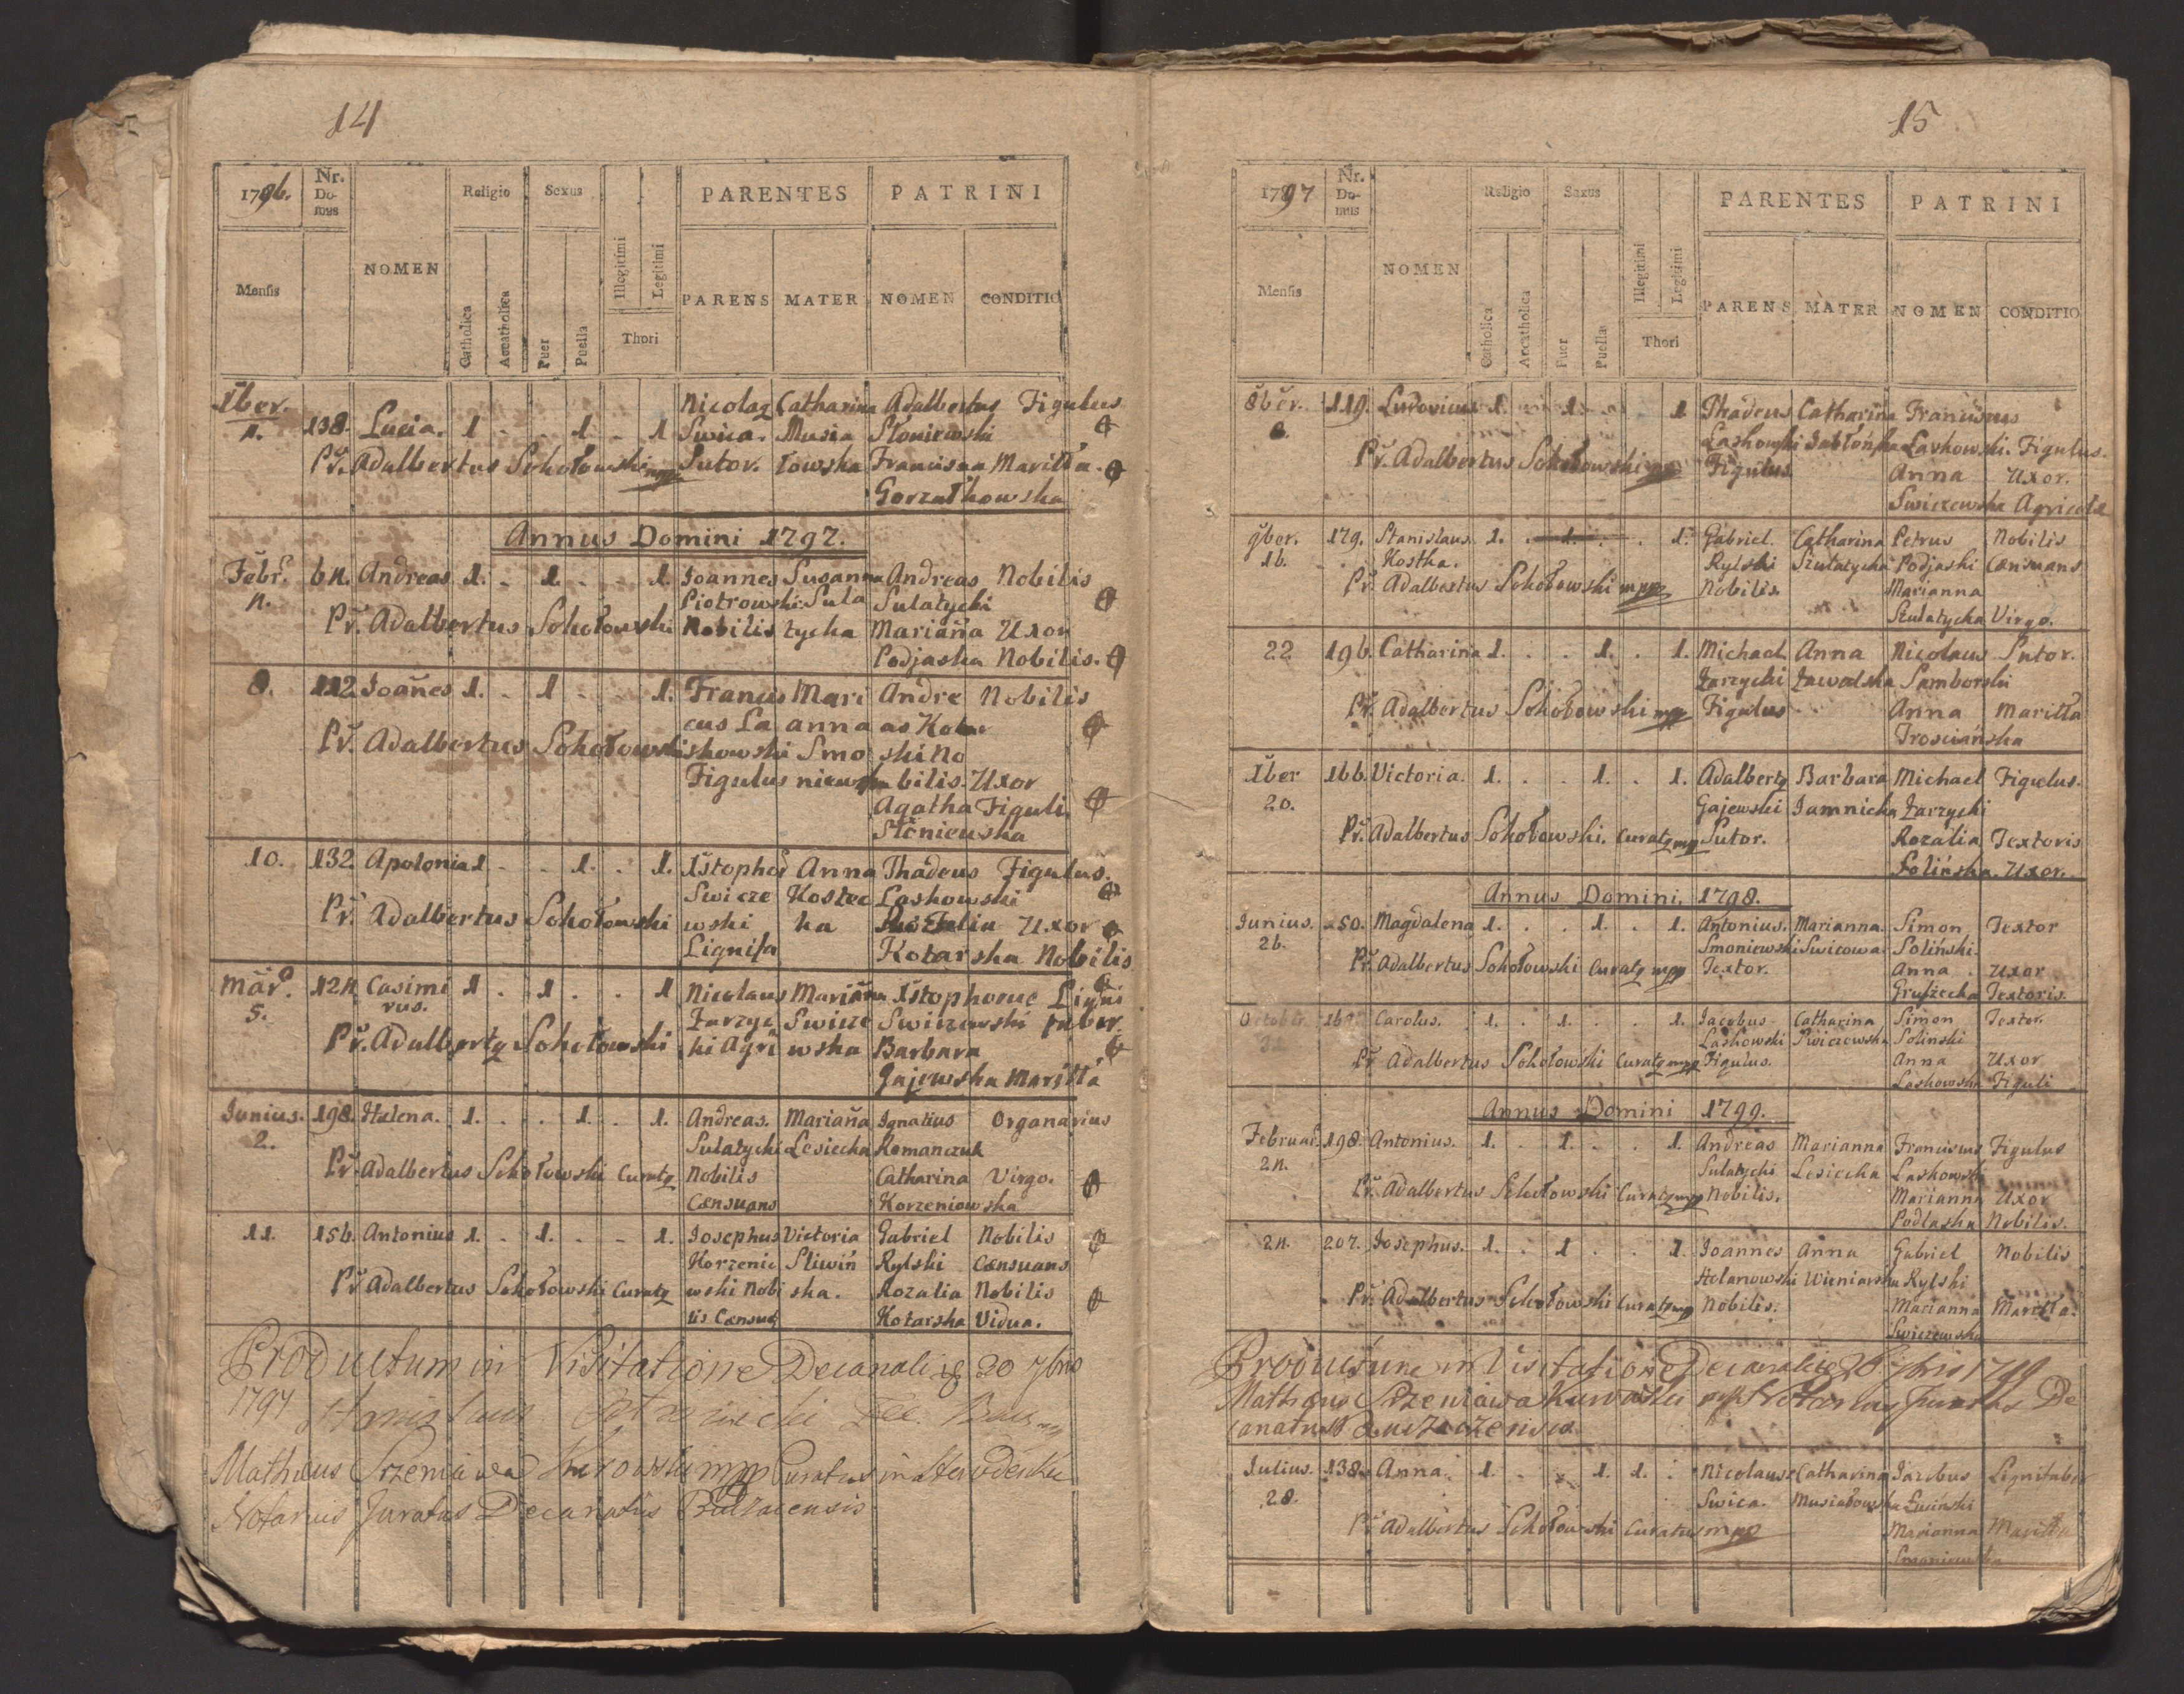 14
1796.
Nr. Domus
NOMEN
Religio
Sexus
PARENTES
PATRINI
Mensis
Catholica
Accatholica
Puer
Puella
Illegitimi
Legitimi
Thori
PARENS
MATER
NOMEN
CONDITIO
Xber. 138. Lucia. 1 . . 1 . 1 Nicolaq Catharina Adalbertus Figulus
Swica. Musia Słoniewski
Pr. Adalbertus Sokołowski mpp Sutor. łowska Francisca Maritta.
Gorzałkowska
Annus Domini 1797.
Febr. Andreas 1. . 1 . . 1. Joannes Susanna Andreas Nobilis
Piotrowski Sula Sulatycki
Pr. Adalbertus Sokołowski Nobilis tycka Mariana Uxor
Podjaska Nobilis.
8. 112 Joanes 1. . 1 . . 1. Francis Mari Andre Nobilis
cus La anna as Kotar
Pr. Adalbertus Sokołowski skowski Smo ski No
Figulus niewska bilis. Uxor
Agatha Figuli
Słoniewska
10. 132 Apolonia 1 . . 1. . 1. Xstophor Anna Thadeus Figulus.
Swicze Kostec Laskowski
Pr. Adalbertus Sokołowski wski ka Rozalia Uxor
Lignifa Kotarska Nobilis
Mar. 5. Casimi rus. 1 . 1 . . 1 Nicolaus Mariana Xstophorus Ligni
Zarzyc Swicze Swiczewski faber.
Pr. Adalbertq Sokołowski ki Agri wska Barbara
Gajewska Maritta
Junius. 2. 198. Helena. 1. . . 1. . 1. Andreas. Mariana Ignatius Organarius
Sulatycki Lesiecka Romanczuk
Pr. Adalbertus Sokołowski Curatq Nobilis Catharina Virgo.
Censuans Korzeniowska
11. 156. Antonius 1. . 1. . . 1. Josephus Victoria Gabriel Nobilis
Korzenio Sliwiń Rylski Censuans
Pr Adalbertus Sokołowski Curatq wski Nobi ska. Rozalia Nobilis
lis Censuq Kotarska Vidua.
Productum in Visitatione Decanali 20 7bris
1797 Stanislaus
Matheus Srzeniawa Kurowski mpp Curatus in
Notarius Juratus Decanatus
15
1797
Nr. Domus
NOMEN
Religio
Sexus
PARENTES
PATRINI
Mensis
Catholica
Accatholica
Puer
Puella
Illegitimi
Legitimi
Thori
PARENS
MATER
NOMEN
CONDITIO
8ber. 8. 119. Ludovicus 1. . 1. . . 1 Thadeus Catharina Franciscus
Laskowski Jabłońska Laskowski. Figulus.
Pr. Adalbertus Sokołowski mpp Figulus Anna Uxor.
Swiczewska Agricolæ
9ber. 16. 179. Stanislaus 1. . 1. . . 1. Gabriel. Catharina Petrus Nobilis
Kostka. Rylski Szulatycka Podjaski Censuans
Pr Adalbertus Sokołowski mpp Nobilis. Marianna
Szulatycka Virgo.
22 196. Catharina 1. . . 1. . 1. Michael Anna Nicolaus Sutor.
Zarzycki Zawalska Samborski
Pr. Adalbertus Sokołowski mpp Figulus Anna Maritta
Trosciańska
Xber 20. 166. Victoria. 1. . . 1. . 1. Adalbertq Barbara Michael Figulus.
Gajewski Jamnicka Zarzycki
Pr. Adalbertus Sokołowski. Curatq mpp Sutor. Rozalia Textoris
Solińska. Uxor.
Annus Domini. 1798.
Junius. 26. 50. Magdalena 1. . . 1. . 1. Antonius. Marianna. Simon Textor
Smoniewski Swicowa. Soliński.
Pr. Adalbertus Sokołowski Curatq mpp Textor. Anna Uxor
Textoris.
October 31 Carolus. 1. . 1. . . 1. Jacobus Catharina Simon Textor.
Laskowski Swiczewska Solinski
Pr Adalbertus Sokołowski Curatq mpp Figulus. Anna Uxor
Laskowska Figuli
Annus Domini 1799.
Februar. 198. Antonius. 1. . 1. . . 1. Andreas Marianna Franciscus Figulus
Sulatycki Lesiecka Laskowski
Pr. Adalbertus Sokołowski Curatq mpp Nobilis. Marianna Uxor
Podlaska Nobilis.
207. Josephus. 1. . 1 . . 1. Joannes Anna Gabriel Nobilis
Holanowski Winiarska Rylski
Pr. Adalbertus Sokołowski Curatq mpp Nobilis. Marianna Maritta.
Swiczewska
Productum in Visitatione Decanali 7bris 1799
Matheus Srzeniawa Kurowski mpp Notarius Juratus De
canatus
Julius. 28. 138. Anna. 1. . . 1. 1. . Nicolaus Catharina Jacobus Lignifaber
Swica. Musiałowska Łusiński
Pr Adalbertus Sokołowski Curatus mpp Marianna Maritta
Smoniewska